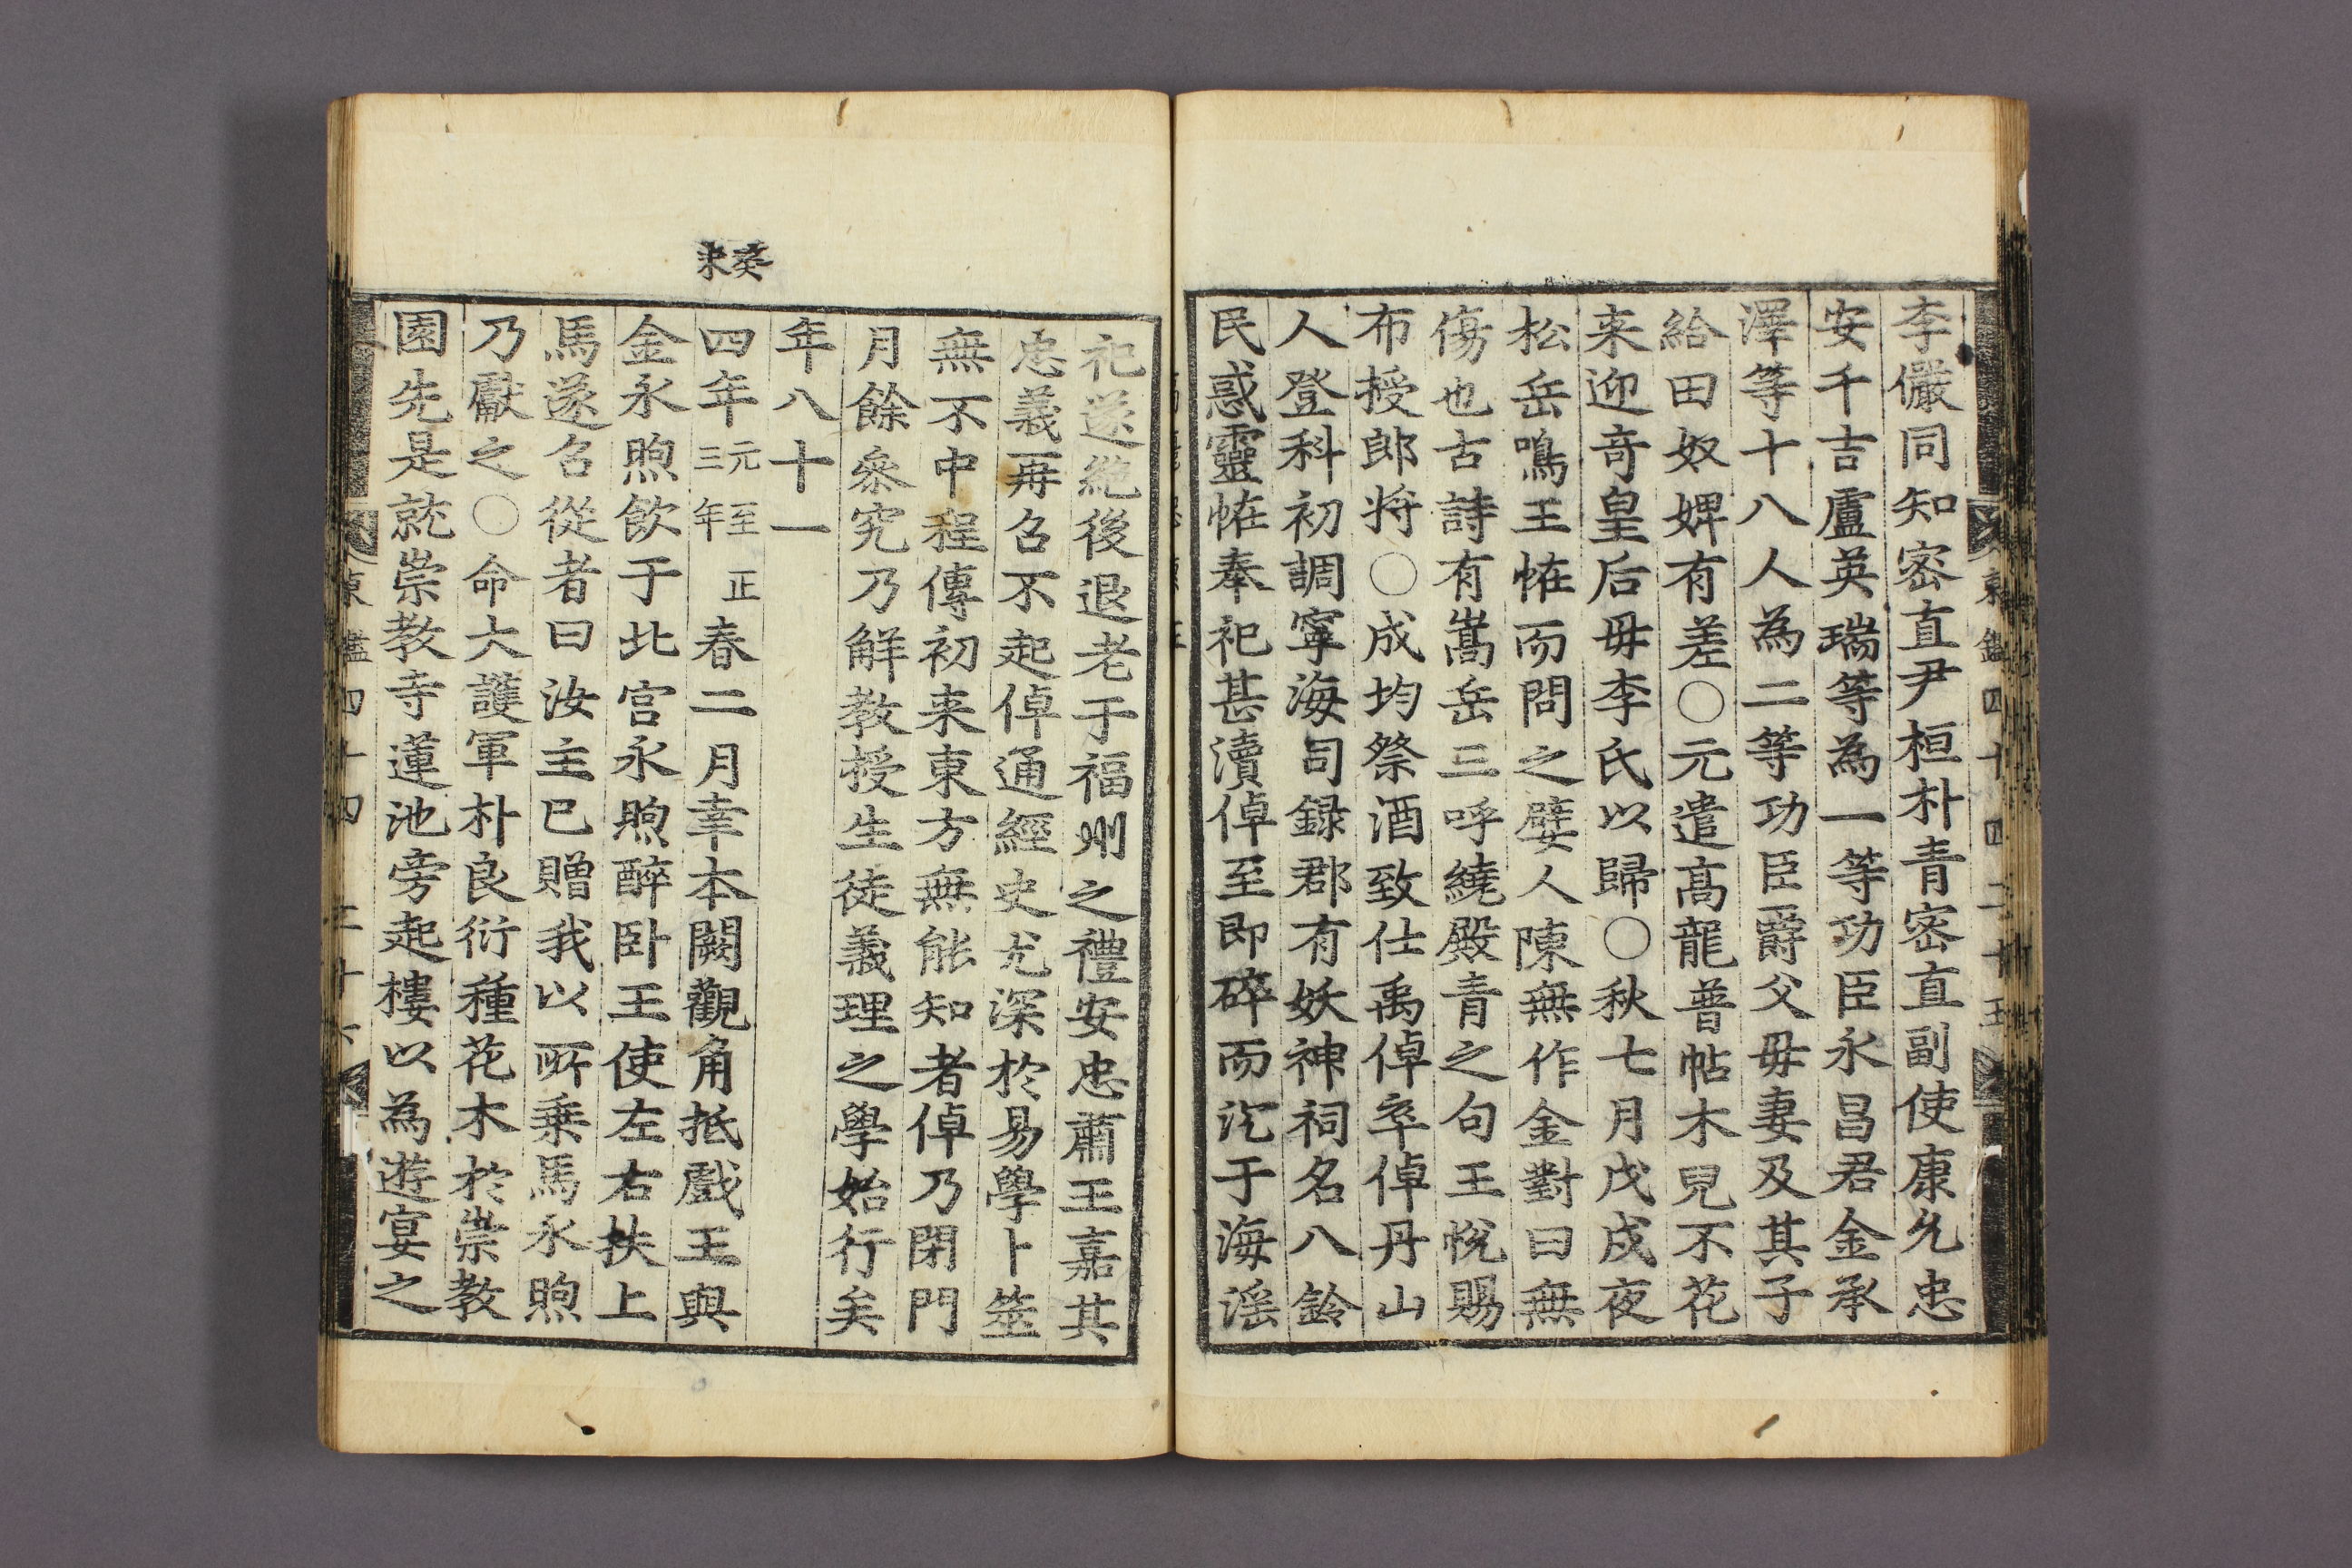 李儼同知密直尹桓朴青密直副使康允忠
安千吉盧英瑞等為一等功臣永昌君金承
澤等十八人為二等功臣爵父毋妻及其子
給田奴婢有差○元遣高龍普帖木兒不花
来迎竒皇后毋李氏以歸○秋七月戊戌夜
松岳鳴王恠而問之嬖人陳無作金對曰無
傷也古詩有嵩岳三呼繞殿青之句王悅賜
布授郎將○成均祭酒致仕禹倬卒倬丹山
人登科初調寧海司録郡有妖神祠名八鈴
民惑靈恠奉祀甚瀆倬至即碎而沉于海滛
東鑑四十四 二十五
癸未
祀遂絶後退老于福州之禮安忠肅王嘉其
忠義再召不起倬通經史尤深於易學卜筮
無不中程傳初来東方無能知者倬乃閉門
月餘叅究乃解教授生徒義理之學始行矣
年八十一
四年元至正三年春二月幸本闕觀角抵戲王與
金永煦飲于北宮永煦醉卧王使左右扶上
馬遂召從者曰汝主已贈我以所乗馬永煦
乃獻之○命大護軍朴良衍種花木於崇教
園先是就崇教寺蓮池旁起樓以為遊宴之
東鑑四十四 二十六